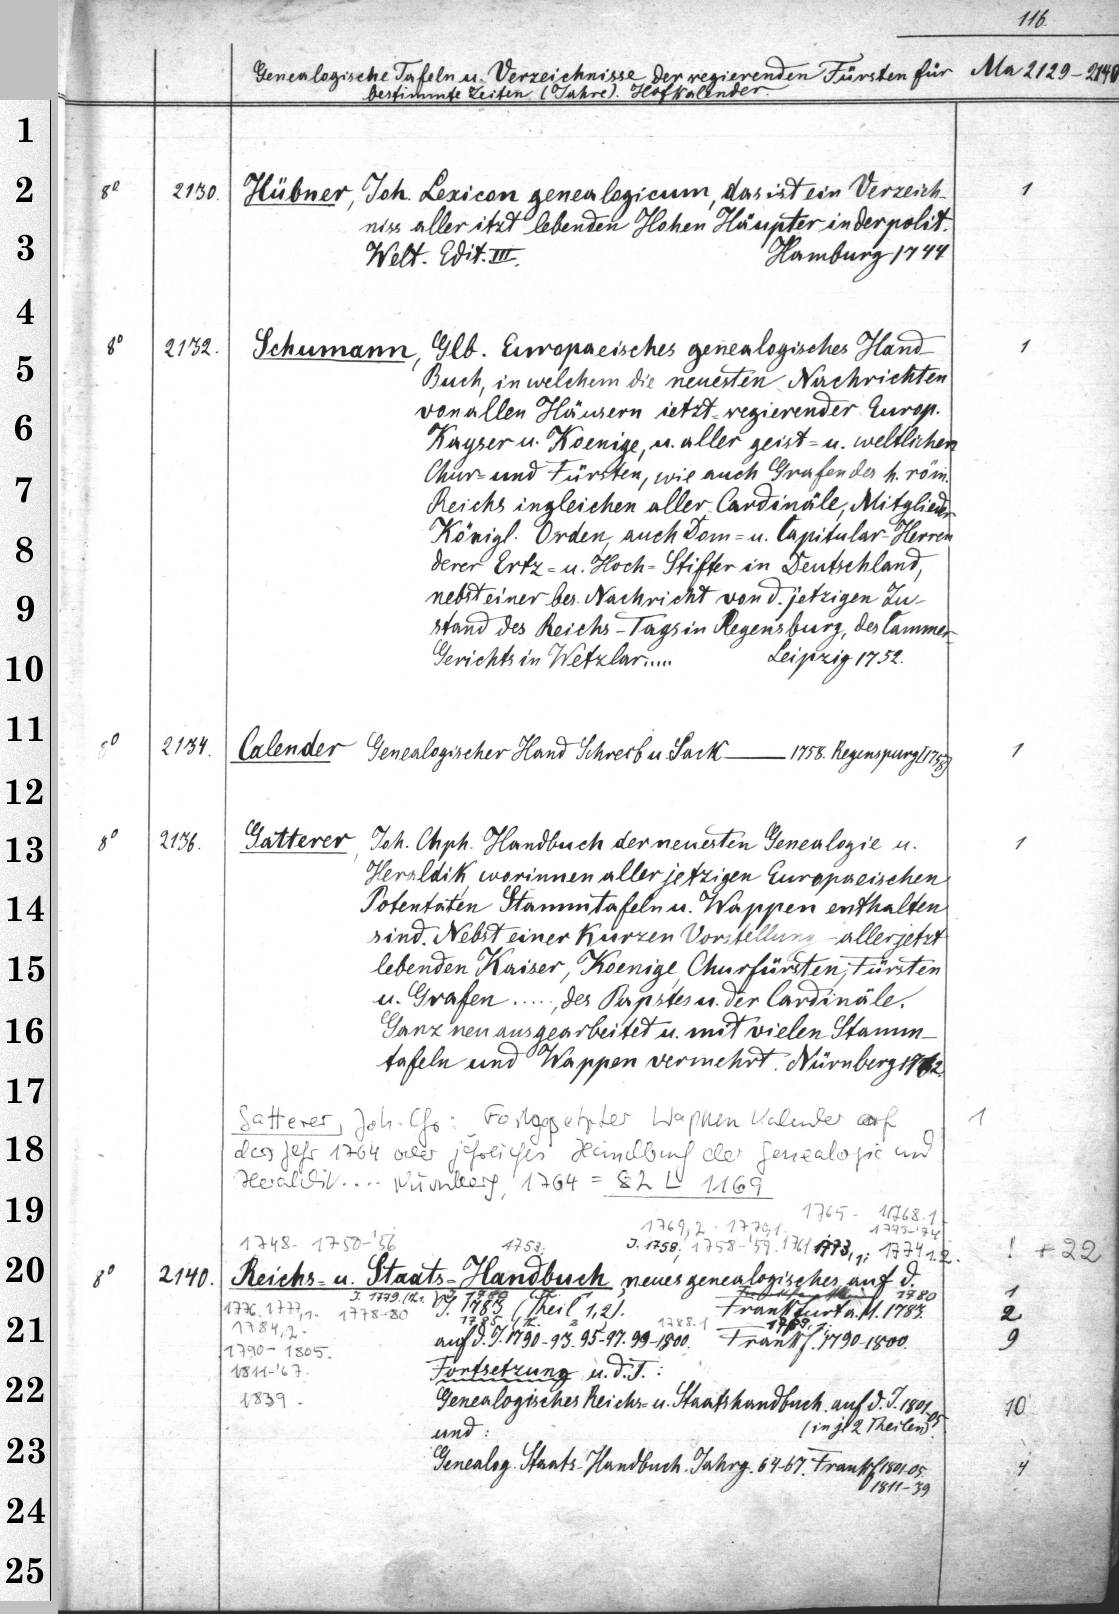 116.
Genealogische Tafeln u. Verzeichnisse der regierenden Fürsten für Ma 2129-2140
bestimmte Zeiten (Jahre). Hofkalender.
1
2 8° 2130. Hübner, Joh. Lexicon genealogicum, das ist ein Verzeich- 1
niss aller itzt lebenden Hohen Häupter in der polit.
3 Welt. Edit. III. Hamburg 1744
4
8° 2132. Schumann, Glb. Europaeisches genealogisches Hand- 1
5 Buch, in welchem die neuesten Nachrichten
von allen Häusern ietzt-regierender Europ.
6 Kayser u. Koenige, u. aller geist= u. weltlichen
Chur= und Fürsten, wie auch Grafen des h. röm.
7 Reichs ingleichen aller Cardinäle, Mitglieder
Königl. Orden, auch Dom= u. Capitular-Herren
8 derer Ertz= u. Hoch= Stifter in Deutschland,
9 nebst einer bes. Nachricht von d. jetzigen Zu-
stand des Reichs-Tags in Regensburg, des Cammer-
10 Gerichts in Wetzlar..... Leipzig 1752.
11 8° 2134. Calender Genealogischer Hand Schreib u. Sack — 1758. Regenspurg (1758) 1
12
13 8° 2136. Gatterer, Joh. Chph. Handbuch der neuesten Genealogie u. 1
Heraldik, worinnen aller jetzigen Europaeischen
14 Potentaten Stammtafeln u. Wappen enthalten
sind. Nebst einer kurzen Vorstellung aller jetzt
15 lebenden Kaiser, Koenige, Churfürsten, Fürsten
u. Grafen ....., des Papstes u. der Cardinäle.
16 Ganz neu ausgearbeitet u. mit vielen Stamm-
tafeln und Wappen vermehrt. Nürnberg 1762.
17
Gatterer, Joh. Chr: Fortgesetzter Wappen Kalender auf 1
18 das Jahr 1764 oder jährliches Handbuch der Genealogie und
Heraldik.... Nürnberg, 1764 = 82 L 1169
19 1765- 1768.1-
1769,2. 1770,1. 1773-'74
1748- 1750-'56 1753; J. 1758; 1758-'59. 1761 1773,1; 1774 1.2. ! + 22
20 8° 2140. Reichs= u. Staats=Handbuch, neues genealogisches, auf d.
1780 1
1776. 1777,1. 1778-80 J. 1783 (Theil 1,2). Frankfurt a. M. 1783. 2
21 1784,2. 1788.1
1790-1805. auf d. J. 1790-93. 95-97. 99-1800. Frankf. 1790-1800. 9
22 1811-'67. Fortsetzung u. d. T.:
1839. Genealogisches Reichs= u. Staatshandbuch. auf d. J. 1801-05 10
und: (in je 2 Theilen).
23 Genealog. Staats-Handbuch. Jahrg. 64-67. Frankf. 1801-05. 4
1811-39
24
25